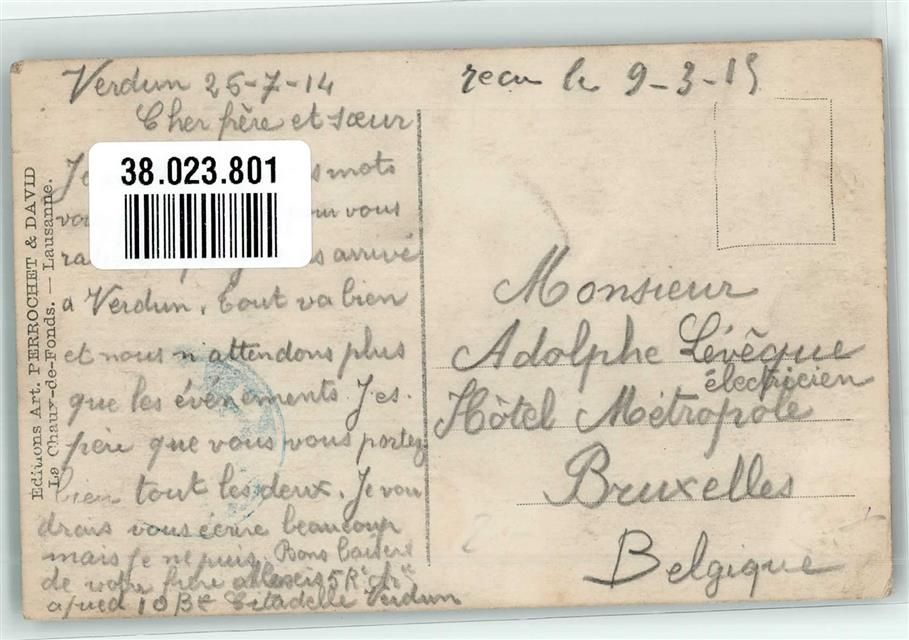 Verdun 25-7-14
Cher frère et sœur
Je mots
vous
arrivé
a Verdun. Tout va bien
et nous n'attendons plus
que les événements. J'es.
père que vous vous portez
bien tout les deux. Je vou
drais vous écrire beaucoup
mais je ne puis. Bons baisers
de votre frère Alexis 5 Rt Arie
a pied 10 Bie Citadelle Verdun
recu le 9-3-15
Monsieur
Adolphe Lévêque
électricien
Hôtel Métropole
Bruxelles
Belgique
Editions Art. PERROCHET & DAVID
La Chaux-de-Fonds. — Lausanne.
38.023.801